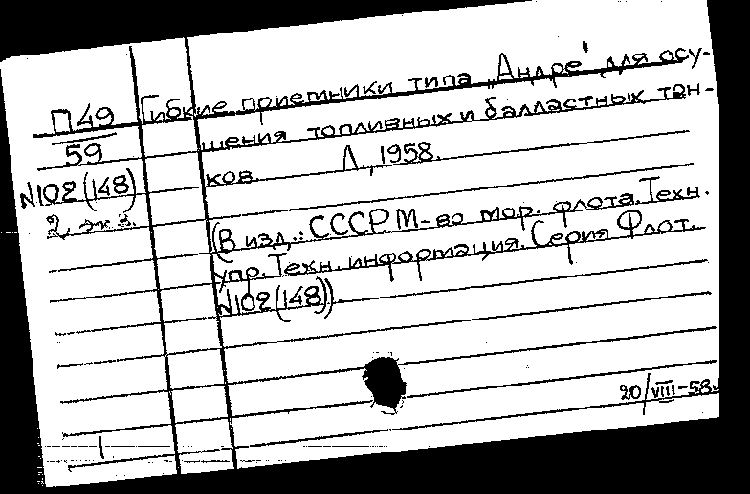 П49
59
N102(148)
2 экз.
Гибкие приемники типа "Андре" для осу-
шения топливных и балластных тан-
ков. Л, 1958.
(В изд.: СССР М-во мор. флота. Техн.
упр. Техн. информация. Серия Флот.
N102(148)).
20/VIII-58.